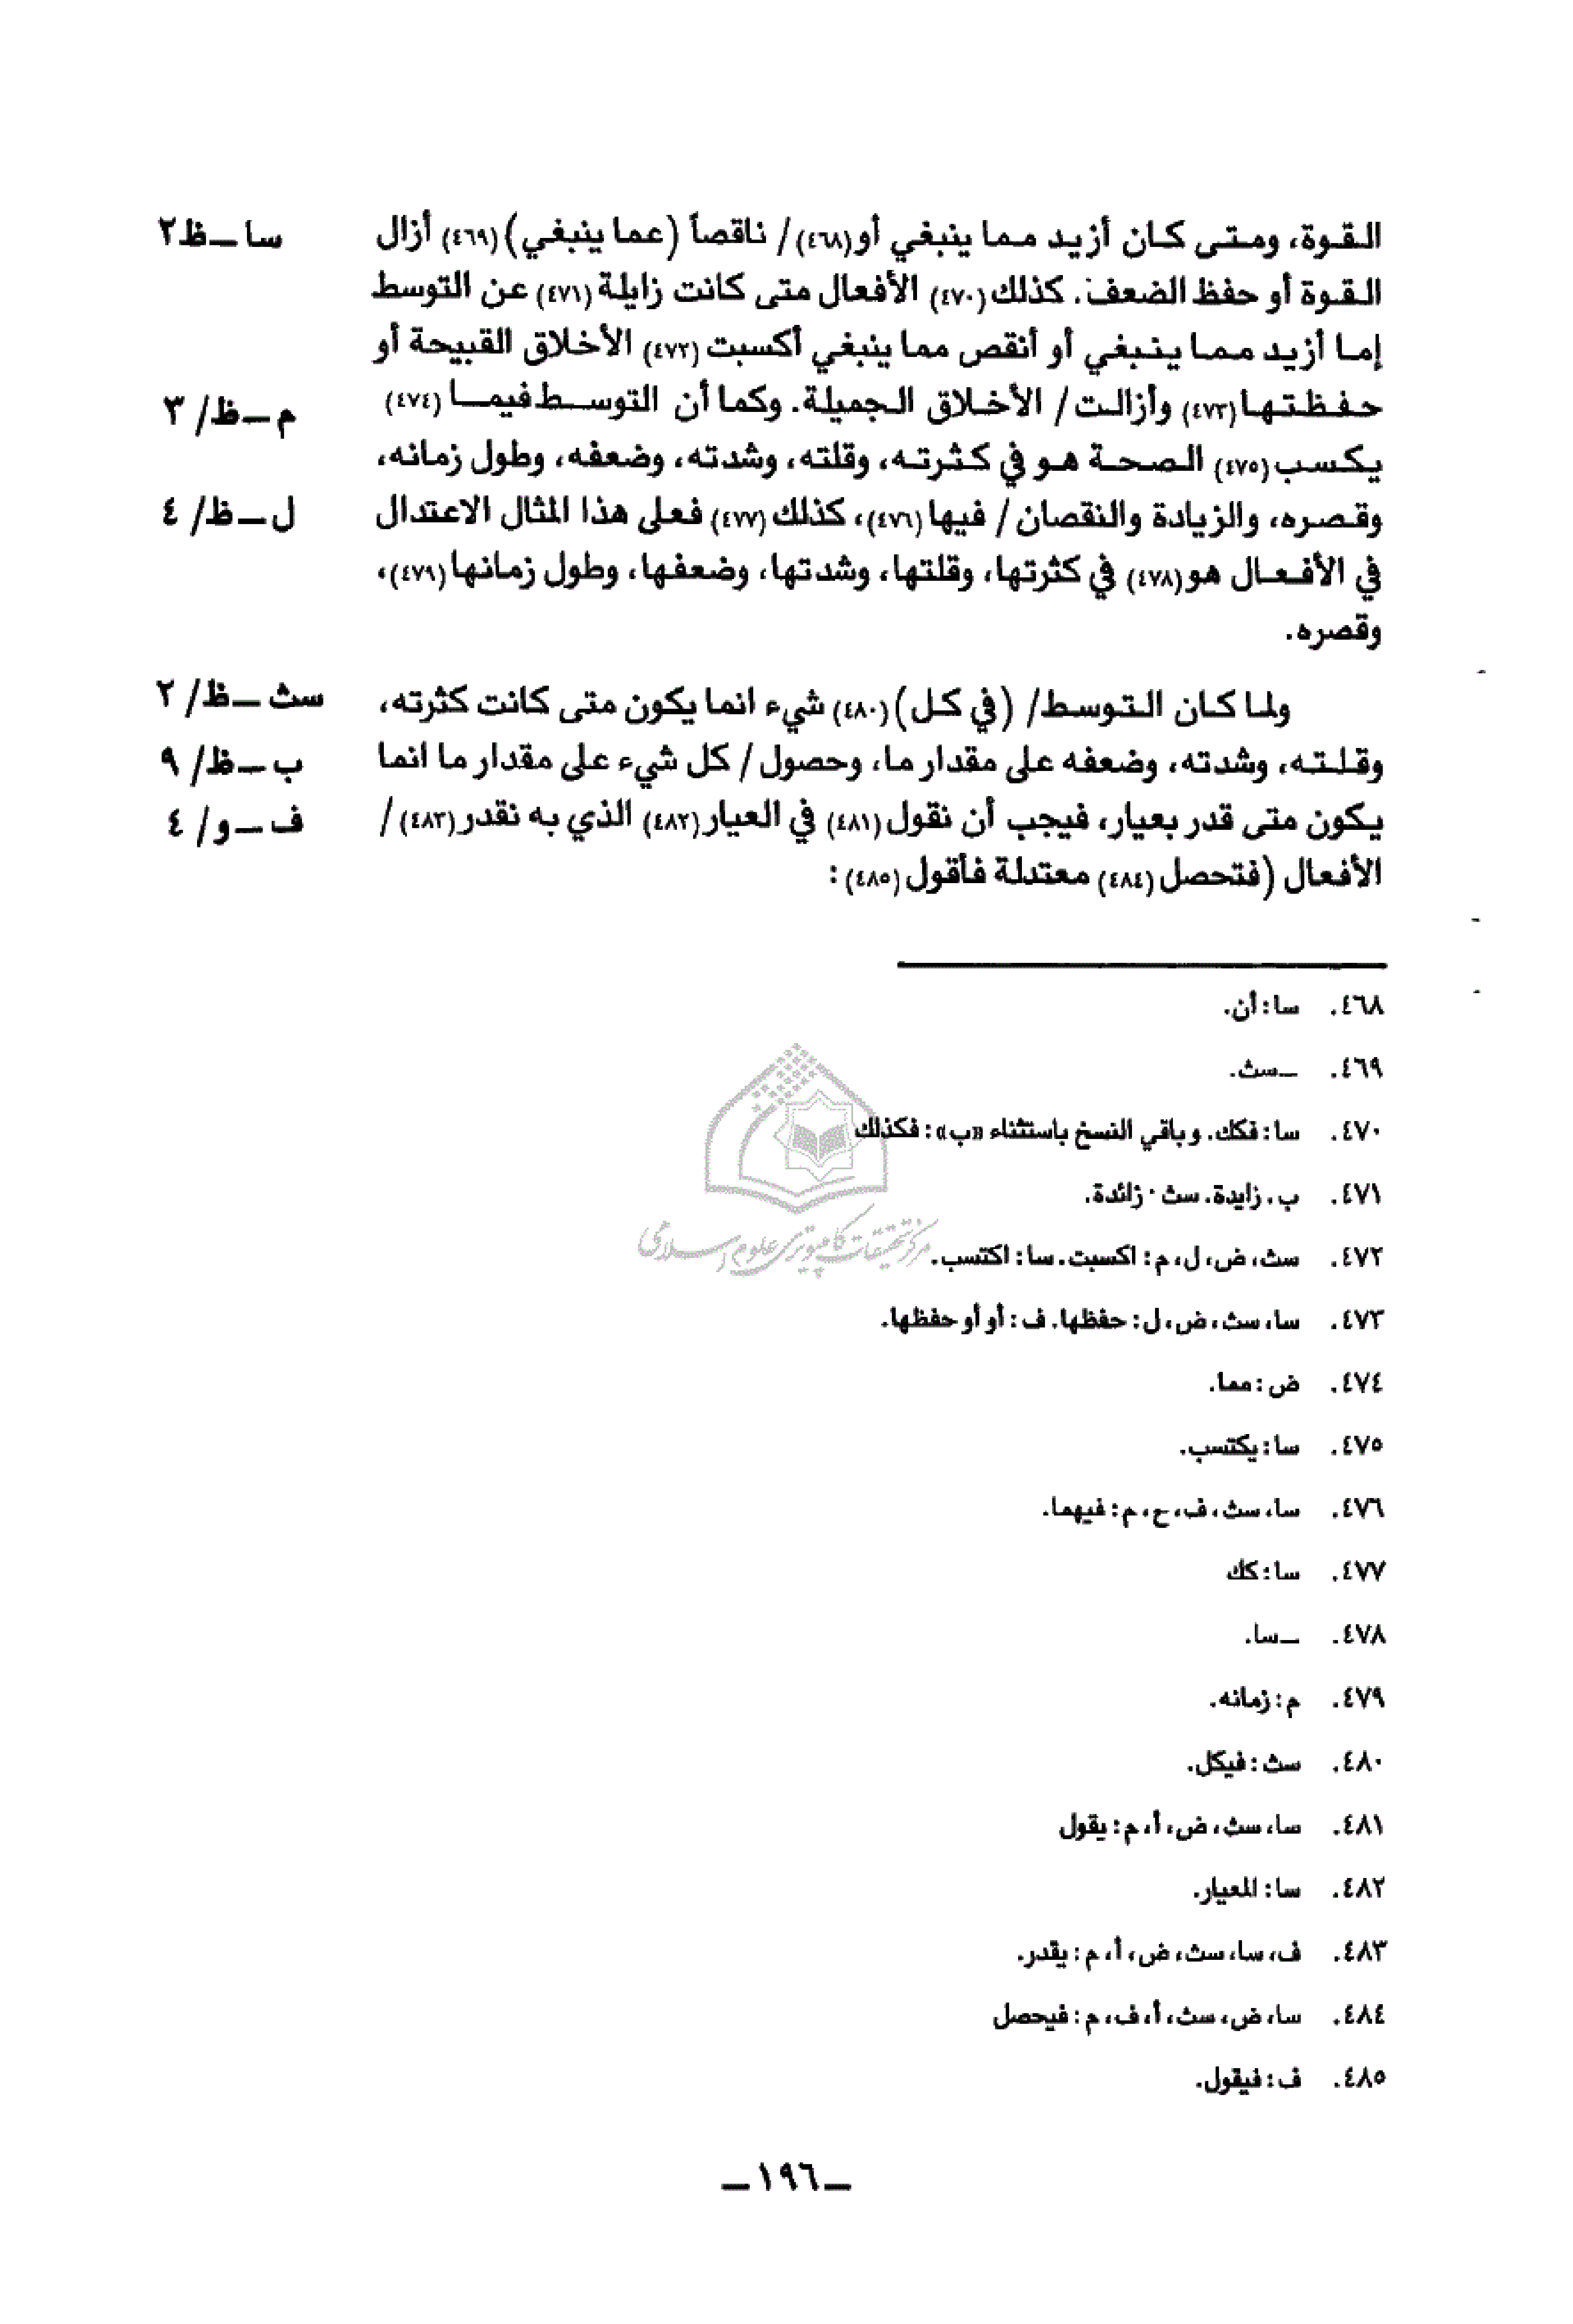 القوة، ومتى كان أزيد مما ينبغي أو(٤٦٨)/ ناقصاً (عما ينبغي)(٤٦٩) أزال سا ــ ظ٢
القوة أو حفظ الضعف. كذلك(٤٧٠) الأفعال متى كانت زايلة(٤٧١) عن التوسط
إما أزيد مما ينبغي أو أنقص مما ينبغي أكسبت(٤٧٢) الأخلاق القبيحة أو
حفظتها(٤٧٣) وأزالت/ الأخلاق الجميلة. وكما أن التوسط فيما (٤٧٤) م ــ ظ/ ٣
يكسب(٤٧٥) الصحة هو في كثرته، وقلته، وشدته، وضعفه، وطول زمانه،
وقصره، والزيادة والنقصان/ فيها(٤٧٦)، كذلك(٤٧٧) فعلى هذا المثال الاعتدال ل ــ ظ/ ٤
في الأفعال هو(٤٧٨) في كثرتها، وقلتها، وشدتها، وضعفها، وطول زمانها(٤٧٩)،
وقصره.
ولما كان التوسط/ (في كل)(٤٨٠) شيء انما يكون متى كانت كثرته، سث ــ ظ/ ٢
وقلته، وشدته، وضعفه على مقدار ما، وحصول/ كل شيء على مقدار ما انما ب ــ ظ/ ٩
يكون متى قدر بعيار، فيجب أن نقول(٤٨١) في العيار(٤٨٢) الذي به نقدر(٤٨٣)/ ف ــ و/ ٤
الأفعال (فتحصل(٤٨٤) معتدلة فأقول(٤٨٥):
٤٦٨. سا: أن.
٤٦٩. ــ سث.
٤٧٠. سا: فكك. وباقي النسخ باستثناء «ب»: فكذلك
٤٧١. ب. زايدة. سث · زائدة.
٤٧٢. سث، ض، ل، م: اكسبت. سا: اكتسب.
٤٧٣. سا، سث، ض، ل: حفظها. ف: أو أو حفظها.
٤٧٤. ض: مما.
٤٧٥. سا: يكتسب.
٤٧٦. سا، سث، ف، ح، م: فيهما.
٤٧٧. سا: كك
٤٧٨. ــ سا.
٤٧٩. م: زمانه.
٤٨٠. سث: فيكل.
٤٨١. سا، سث، ض، أ، م: يقول
٤٨٢. سا: المعيار.
٤٨٣. ف، سا، سث، ض، أ، م: يقدر.
٤٨٤. سا، ض، سث، أ، ف، م: فيحصل
٤٨٥. ف: فيقول.
مركز تحقيقات كامپيوترى علوم اسلامى
ــ ١٩٦ ــ